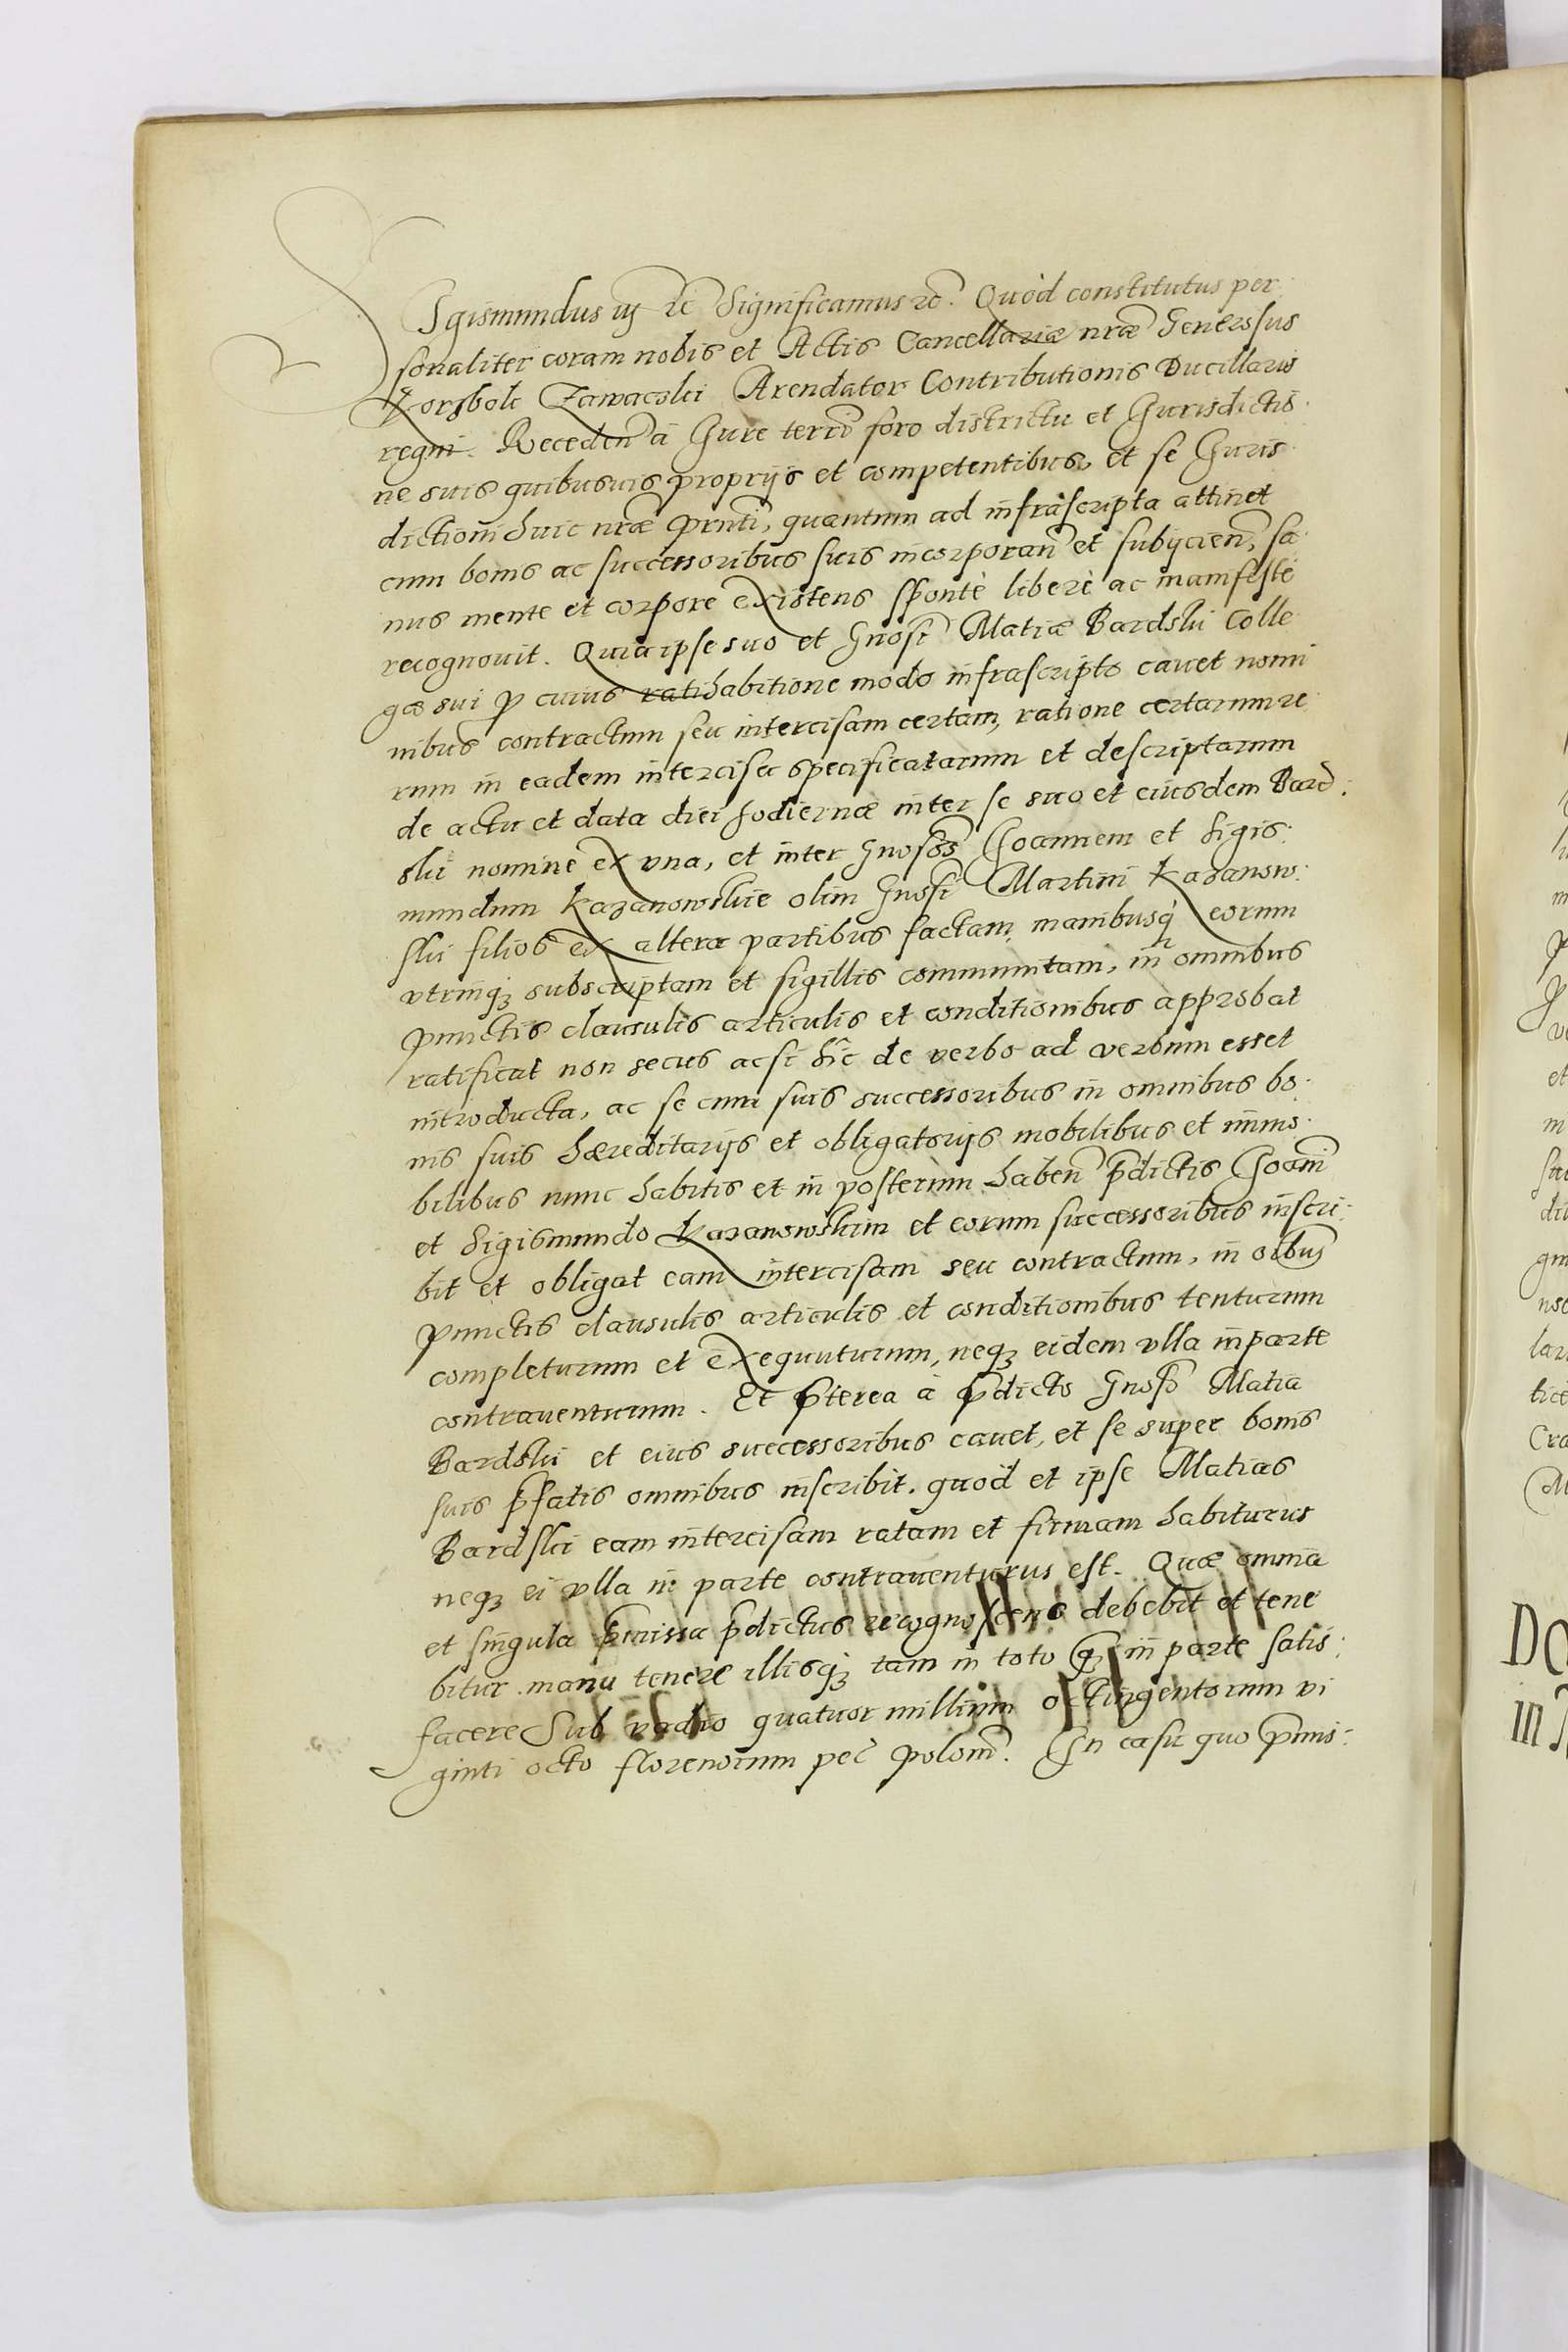 Sgismundus iij etc Significamus etc. Quòd constitutus per:
sonaliter coram nobis et Actis Cancellariæ nræ Generosus
Korsbok Zawaczki Arendator Contributionis Ducillaris
regni. Receden à Iure terri foro districtu et Iurisdictio:
ne suis quibusuis proprijs et competentibus, et se Iuris
dictioni huic nræ prnti, quantum ad infrascripta attinet
cum bonis ac successoribus suis incorporan et subijcien, sa:
nus mente et corpore existens sponte libere ac manifeste
recognouit. Quia ipse suo et Gnosi Matiæ Bardski Colle
gæ sui p cuius ratihabitione modo infrascripto cauet nomi
nibus contractum seu intercisam certam, ratione certarum re
rum in eadem intercisa specificatarum et descriptarum
de actu et data diei hodiernæ inter se suo et eiusdem Bard:
ski nomine ex vna, et inter Gnosos Ioannem et Sigis:
mundum Kazanowskie olim Gnosi Martini Kazanow:
ski filios ex altera partibus factam, manibusq eorum
vtrinq subscriptam et sigillis communitam, in omnibus
punctis clausulis articulis et conditionibus approbat
ratificat non secus acsi hic de verbo ad verbum esset
introducta, ac se cum suis successoribus in omnibus bo:
nis suis hæreditarijs et obligatorijs mobilibus et immo:
bilibus nunc habitis et in posterum haben pdictis Ioanni
et Sigismundo Kazanowskim et eorum successoribus inscri:
bit et obligat eam intercisam seu contractum, in oibus
punctis clausulis articulis et conditionibus tenturum
completurum et exequuturum, neq eidem vlla in parte
contrauenturum. Et pterea à pdicto Gnoso Matia
Bardski et eius successoribus cauet, et se super bonis
suis pfatis omnibus inscribit. quod et ipse Matias
Bardski eam intercisam ratam et firmam habiturus
neq ei vlla in parte contrauenturus est. Quæ omnia
et singula pmissa pdictus recognoscens debebit et tene
bitur manu tenere illisq tam in toto q in parte satis:
facere Sub vadio quatuor millium octingentorum vi
ginti octo florenorum pec polon. In casu quo pmis: